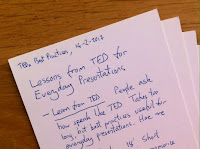 TED Best Practices, 14-2-2013
Lessons from TED for
Everyday Presentations
– Learn from TED People ask
how speak like TED Takes too
long, but best practices useful for
everyday presentations. Here are
18' Short